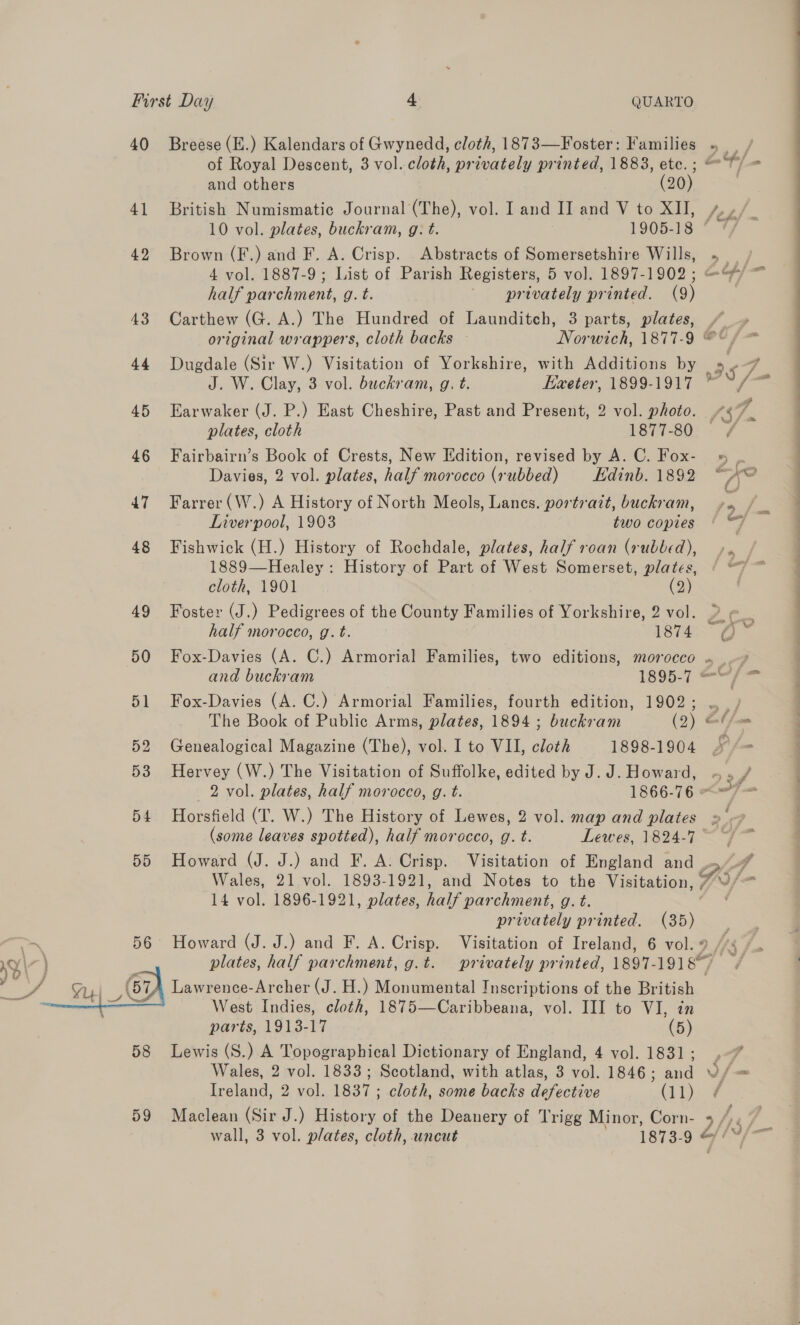 First Day 4 QUARTO
40 Breese (E.) Kalendars of Gwynedd, cloth, 1873—Foster: Families
of Royal Descent, 3 vol. cloth, privately printed, 1883, etc. ;
and others (20)
41 British Numismatic Journal (The), vol. I and II and V to XII,
10 vol. plates, buckram, g. t. 1905-18
42 Brown (F.) and F. A. Crisp. Abstracts of Somersetshire Wills,
4 vol. 1887-9 ; List of Parish Registers, 5 vol. 1897-1902 ;
half parchment, g. t. privately printed. (9)
43 Carthew (G. A.) The Hundred of Launditch, 3 parts, plates,
original wrappers, cloth backs Norwich, 1877-9
44 Dugdale (Sir W.) Visitation of Yorkshire, with Additions by
J. W. Clay, 3 vol. buckram, g. t. Exeter, 1899-1917
45 Earwaker (J. P.) East Cheshire, Past and Present, 2 vol. photo.
plates, cloth 1877-80
46 Fairbairn's Book of Crests, New Edition, revised by A. C. Fox-
Davies, 2 vol. plates, half morocco (rubbed) Edinb. 1892
47 Farrer (W.) A History of North Meols, Lancs. portrait, buckram,
Liverpool, 1903 two copies
48 Fishwick (H.) History of Rochdale, plates, half roan (rubbed),
1889—Healey : History of Part of West Somerset, plates,
cloth, 1901 (2)
49 Foster (J.) Pedigrees of the County Families of Yorkshire, 2 vol.
half morocco, g. t. 1874
50 Fox-Davies (A. C.) Armorial Families, two editions, morocco
and buckram 1895-7
51 Fox-Davies (A. C.) Armorial Families, fourth edition, 1902 ;
The Book of Public Arms, plates, 1894 ; buckram (2)
52 Genealogical Magazine (The), vol. I to VII, cloth 1898-1904
53 Hervey (W.) The Visitation of Suffolke, edited by J. J. Howard,
2 vol. plates, half morocco, g. t. 1866-76
54 Horsfield (T. W.) The History of Lewes, 2 vol. map and plates
(some leaves spotted), half morocco, g. t. Lewes, 1824-7
55 Howard (J. J.) and F. A. Crisp. Visitation of England and
Wales, 21 vol. 1893-1921, and Notes to the Visitation,
14 vol. 1896-1921, plates, half parchment, g. t.
privately printed. (35)
56 Howard (J. J.) and F. A. Crisp. Visitation of Ireland, 6 vol.
plates, half parchment, g.t. privately printed, 1897-1918
57 Lawrence-Archer (J. H.) Monumental Inscriptions of the British
West Indies, cloth, 1875—Caribbeana, vol. III to VI, in
parts, 1913-17 (5)
58 Lewis (S.) A Topographical Dictionary of England, 4 vol. 1831 ;
Wales, 2 vol. 1833 ; Scotland, with atlas, 3 vol. 1846 ; and
Ireland, 2 vol. 1837 ; cloth, some backs defective (11)
59 Maclean (Sir J.) History of the Deanery of Trigg Minor, Corn-
wall, 3 vol. plates, cloth, uncut 1873-9